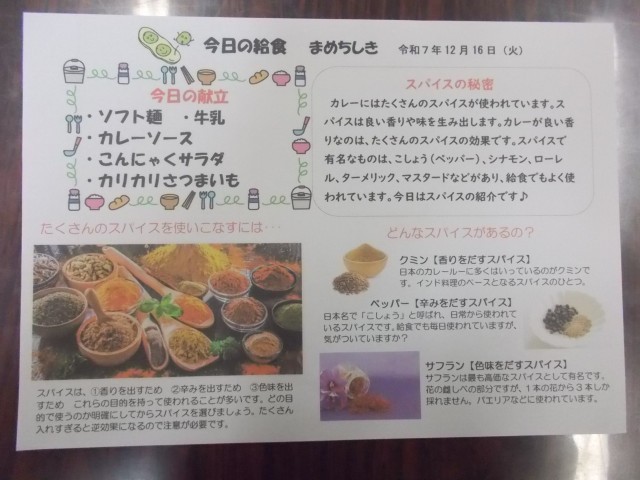 今日の給食　まめちしき　令和７年１２月１６日（火）
今日の献立
・ソフト麺　・牛乳
・カレーソース
・こんにゃくサラダ
・カリカリさつまいも
スパイスの秘密
カレーにはたくさんのスパイスが使われています。ス
パイスは良い香りや味を生み出します。カレーが良い香
りなのは、たくさんのスパイスの効果です。スパイスで
有名なものは、こしょう（ペッパー）、シナモン、ローレ
ル、ターメリック、マスタードなどがあり、給食でもよく使
われています。今日はスパイスの紹介です♪
たくさんのスパイスを使いこなすには・・・
スパイスは、①香りを出すため　②辛みを出すため　③色味を出
すため　これらの目的を持って使われることが多いです。どの目
的で使うのか明確にしてからスパイスを選びましょう。たくさん
入れすぎると逆効果になるので注意が必要です。
どんなスパイスがあるの？
クミン【香りをだすスパイス】
日本のカレールーに多くはいっているのがクミンで
す。インド料理のベースとなるスパイスのひとつ。
ペッパー【辛みをだすスパイス】
日本名で「こしょう」と呼ばれ、日常から使われて
いるスパイスです。給食でも毎日使われていますが、
気がついていますか？
サフラン【色味をだすスパイス】
サフランは最も高価なスパイスとして有名です。
花の雌しべの部分ですが、１本の花から３本しか
採れません。パエリアなどに使われています。